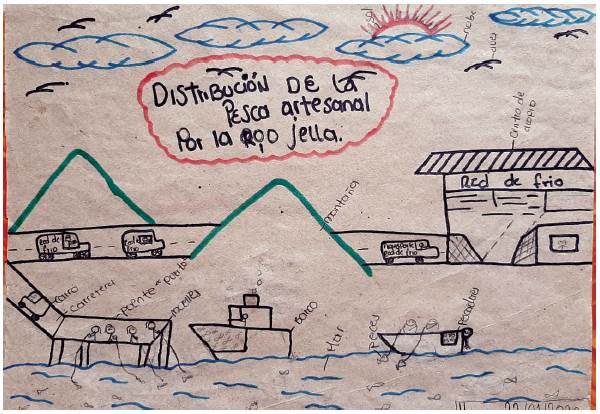 sol
nube
aves
DISTRIBUCIÓN DE LA
PESCA artesanal
Por la ROO jella.
centro de
acopio
Red de frio
montaña
Red de
frio
Red de
frio
Transporte
Red de frio
carro
carretera
puente o puerto
Barco
Mar
Peces
Pescadores